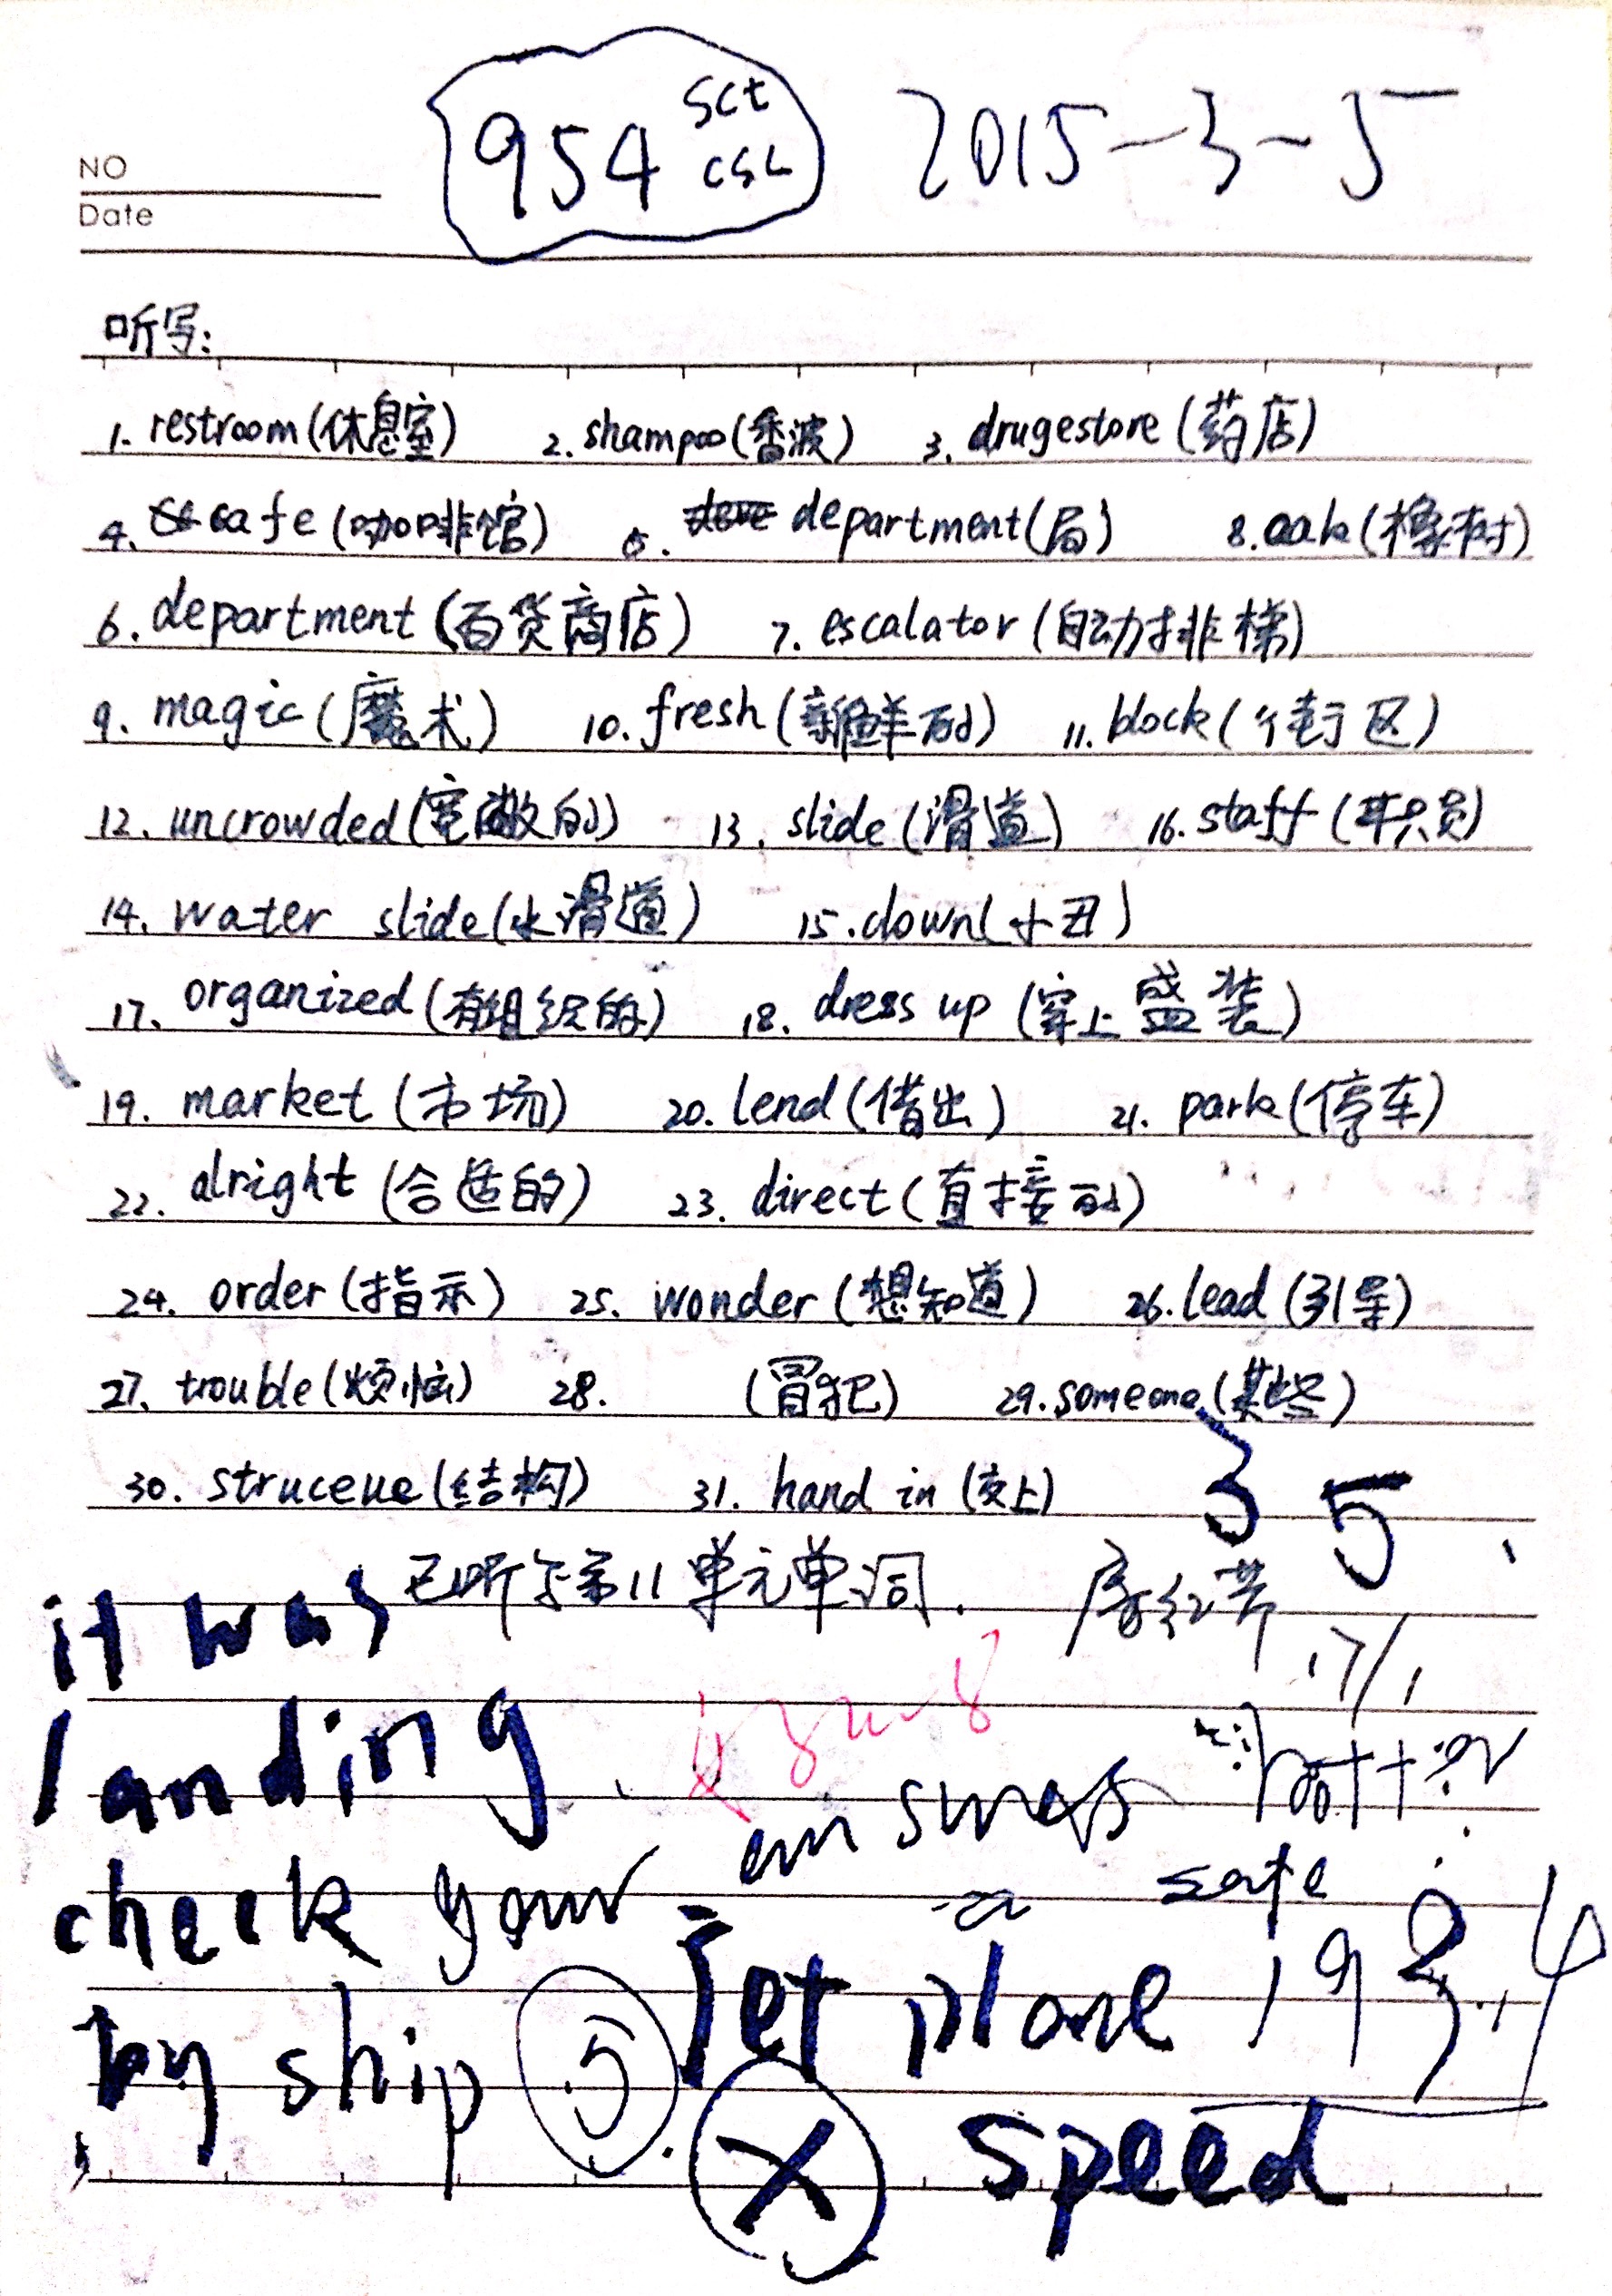 954 SCt CSL 2015-3-5
NO
Date
听写:
1. restroom(休息室) 2. shampoo(香波) 3. drugestore(药店)
4. cafe(咖啡馆) 5. department(局) 8. oak(橡树)
6. department(百货商店) 7. escalator(自动扶梯)
9. magic(魔术) 10. fresh(新鲜的) 11. block(街区)
12. uncrowded(宽敞的) 13. slide(滑道) 16. staff(职员)
14. water slide(水滑道) 15. clown(小丑)
17. organized(有组织的) 18. dress up(穿上盛装)
19. market(市场) 20. lend(借出) 21. park(停车)
22. alright(合适的) 23. direct(直接的)
24. order(指示) 25. wonder(想知道) 26. lead(引导)
27. trouble(烦恼) 28. (冒犯) 29. someone(某些)
30. struceue(结构) 31. hand in(交上)
3 5
it was 已听写第11单元单词.
landing
safe
check your
Jet plane 193.4
by ship 5
speed